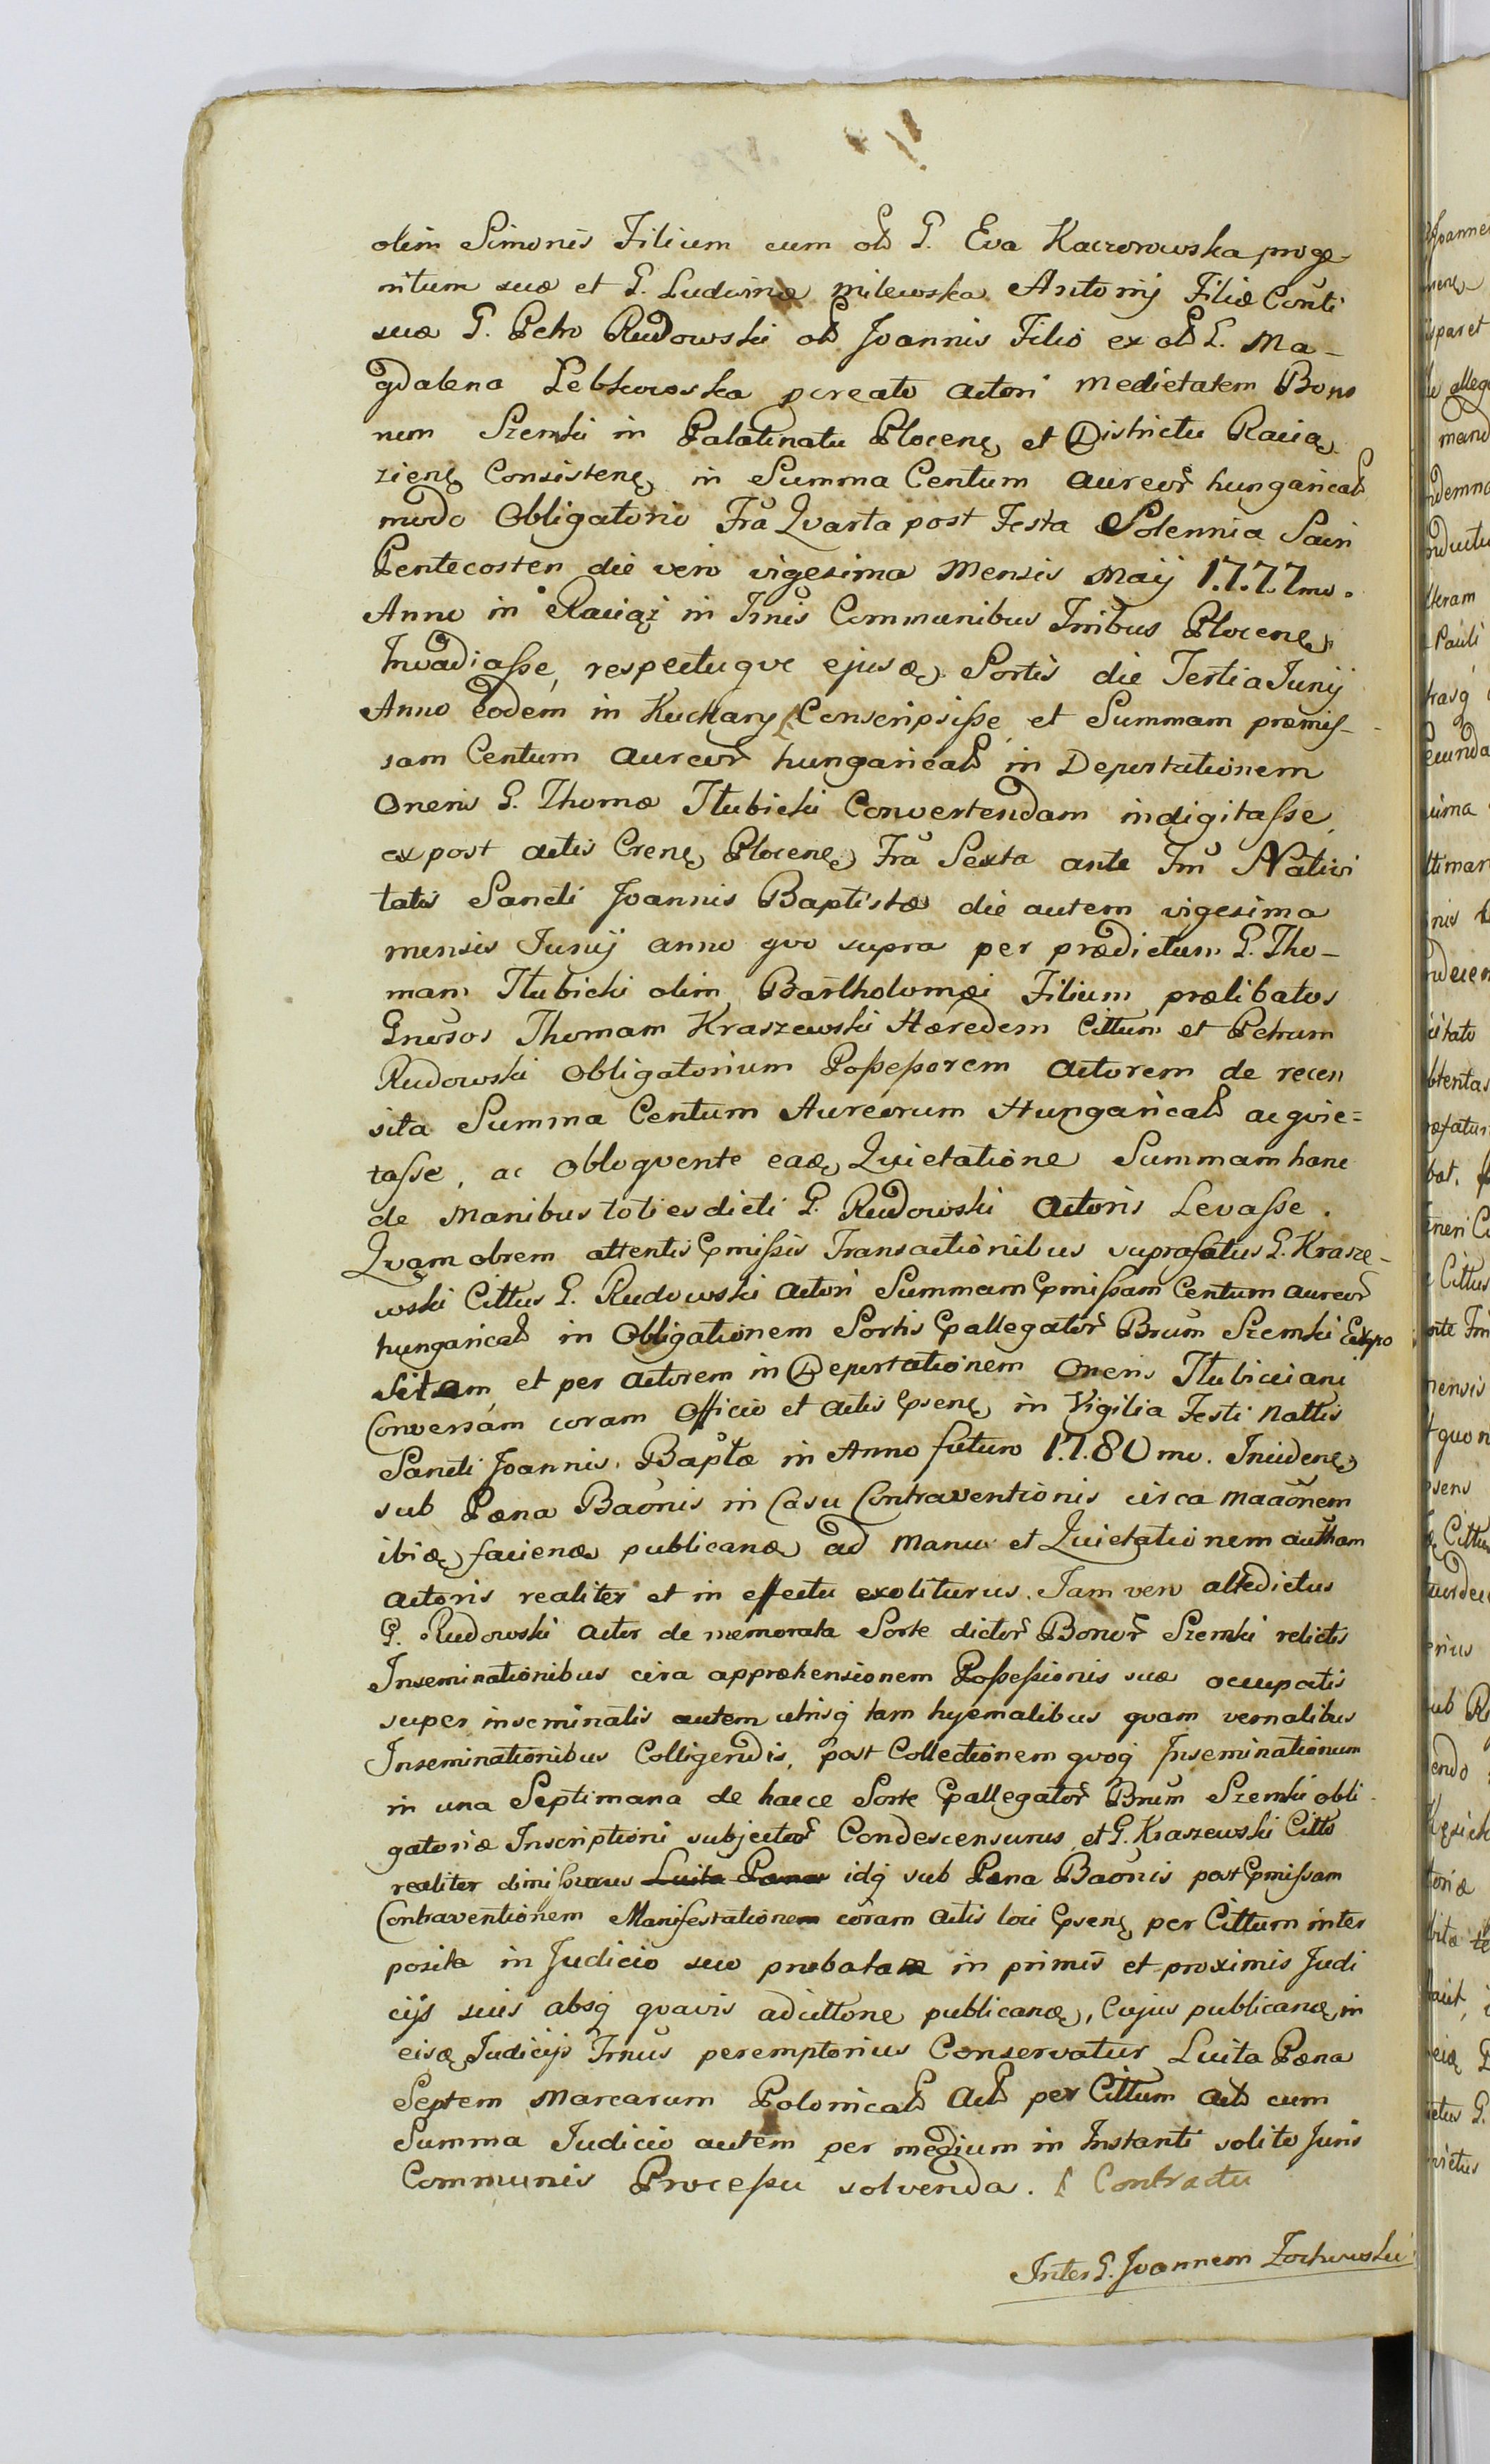 olim Simonis Filium cum olð G. Eva Kaczorowska proge-
nitum suæ et G. Ludovinæ Milewska Antonij Filiæ Conti
suæ G. Petro Rudowski olð Joannis Filio ex olð G. Ma-
gdalena Lebkowska pcreato Actori medietatem Bono
rum Szemki in Palatinatu Plocenę et Districtu Raciąs
zienę Consistenę in Summa Centum aureor̃ hungaricalð
modo Obligatorio Fr̃a Qvarta post Festa Solennia Sacri
Pentecosten die vero vigesima Mensis Maij 1.7.7.7mo.
Anno in Raciąż in Tr̃nis Communibus Tr̃ribus Plocenę
Invadiasse, respectuqve ejusdę Sortis die Tertia Junij
Anno Eodem in Kuchary Conscripsisse et Summam præmis-
sam Centum aureor̃ hungaricalð in Deportationem
Oneris G. Thomæ Tłubicki Convertendam indigitasse,
ex post actis Crenę Plocenę Fr̃a Sexta ante Fm̃ Nativi
tatis Sancti Joannis Baptistæ die autem vigesima
mensis Junij anno qvo supra per prædictum G. Tho-
mam Tłubicki olim Bartholomæi Filium prælibatos
Gnõsos Thomam Kraszewski Hæredem Cittum et Petrum
Rudowski Obligatorium Possessorem Actorem de recen
sita Summa Centum Aureorum Hungaricalð acqvie=
tasse, ac obloqvente eadę Qvietatione Summam hanc
de Manibus toties dicti G. Rudowski Actoris Levasse.
Qvam obrem attentis pmissis Transactionibus suprafatus G. Krasze-
wski Cittus G. Rudowski Actori Summam pmissam Centum aureor̃
hungaricalð in Obligationem Sortis pallegator̃ Br̃um Szemki Expo
sitam et per actorem in Deportationem Oneris Tłubiciani
Conversam coram Officio et Actis psenę in Vigilia Festi Nattis
Sancti Joannis Baptæ in Anno futuro 1.7.80 mo. Incidenę
sub Pæna Baõnis in Casu Contraventionis circa Maãonem
ibidę faciendę publicandę ad Manus et Qvietationem autham
actoris realiter et in effectu exolliturus. Jam vero altedictus
G. Rudowski Actor de memorata Sorte dictor̃ Bonor̃ Szemki relictis
Inseminationibus circa appræhensionem Possessionis suæ occupatis
super inseminatis autem utrisq tam hyemalibus qvam vernalibus
Inseminationibus Colligendis, post Collectionem qvoq Inseminationum
in una Septimana de haece Sorte pallegator̃ Br̃um Szemki obli
gatoriæ Inscriptioni subjector̃ Condescensurus et G. Kraszewski Citto
realiter dimissurus Luita Pæna idq sub Pæna Baõnis post pmissam
Contraventionem Manifestationem coram Actis loci psenę per Cittum inter
posita in Judicio suo probatam in primis et proximis Judi
cijs suis absq qvavis adcittone publicandę, Cujus publicandę in
eisdę Judicijs Tr̃nus peremptorius Conservatur Luita Pæna
Septem Marcarum Polonicalð Actð per Cittum Actð cum
Summa Judicio autem per medium in Instanti solito Juris
Communis Processu solvenda. Contractu
Inter G. Joannem Żochowski